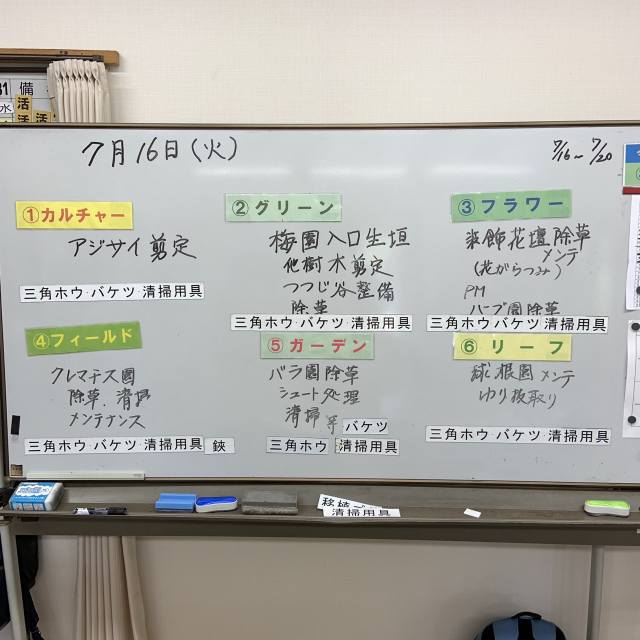 31 備
水 活 活
7月16日(火)
7/16~7/20
①カルチャー
アジサイ剪定
三角ホウ バケツ 清掃用具
②グリーン
梅園入口生垣
他樹木剪定
つつじ谷整備
除草
三角ホウ バケツ 清掃用具
③フラワー
装飾花壇除草
メンテ
(花がらつみ)
PM
ハーブ園除草
三角ホウ バケツ 清掃用具
④フィールド
クレマチス園
除草、清掃
メンテナンス
三角ホウ バケツ 清掃用具 鋏
⑤ガーデン
バラ園除草
シュート処理
清掃 等
バケツ
三角ホウ 清掃用具
⑥リーフ
球根園メンテ
ゆり抜取り
三角ホウ バケツ 清掃用具
清掃用具